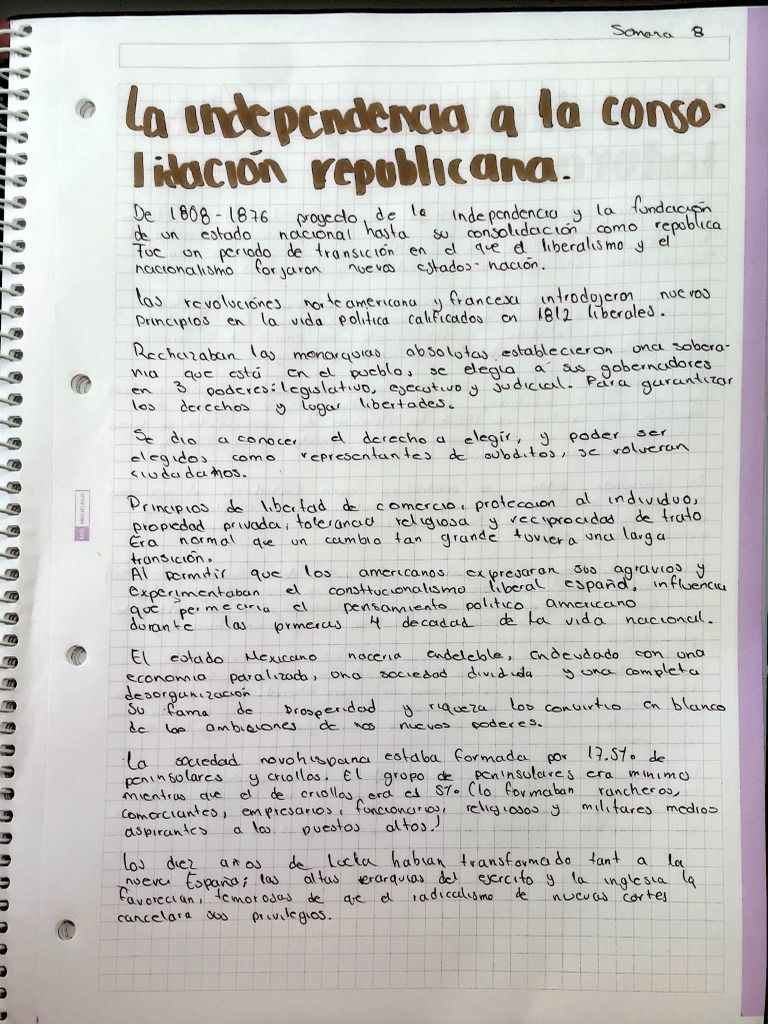 Semana 8
La independencia a la conso-
lidación republicana.
De 1808-1876 proyecto de la independencia y la fundación
de un estado nacional hasta su consolidación como republica
Fue un periodo de transición en el que el liberalismo y el
nacionalismo forjaron nuevos estados-nación.
Las revoluciónes norteamericana y francesa introdujeron nuevos
principios en la vida politica calificados en 1812 liberales.
Rechazaban las monarquias absolutas establecieron una sobera-
nia que está en el pueblo, se elegia a sus gobernadores
en 3 poderes: legislativo, ejecutivo y judicial. Para garantizar
los derechos y lograr libertades.
Se dio a conocer el derecho a elegir, y poder ser
elegidos como representantes de subditos, se volveran
ciudadanos.
Principios de libertad de comercio, protección al individuo,
propiedad privada, tolerancia religiosa y reciprocidad de trato
Era normal que un cambio tan grande tuviera una larga
transición.
Al permitir que los americanos expresaran sus agravios y
experimentaban el constitucionalismo liberal español, influencia
que permearia el pensamiento politico americano
durante las primeras 4 decadas de la vida nacional.
El estado Mexicano naceria endeleble, endeudado con una
economia paralizada, una sociedad dividida y una completa
desorganización
Su fama de prosperidad y riqueza los convirtio en blanco
de las ambiciones de los nuevos poderes.
La sociedad novohispana estaba formada por 17.5% de
peninsulares y criollos. El grupo de peninsulares era minimo
mientras que el de criollos era el 5% (lo formaban rancheros,
comerciantes, empresarios, funcionarios, religiosos y militares medios
aspirantes a los puestos altos.)
Los diez años de lucha habian transformado tant a la
nueva España; las altas jerarquias del ejercito y la inglesia la
favorecian, temorosas de que el radicalismo de nuevas cortes
cancelara sus privilegios.